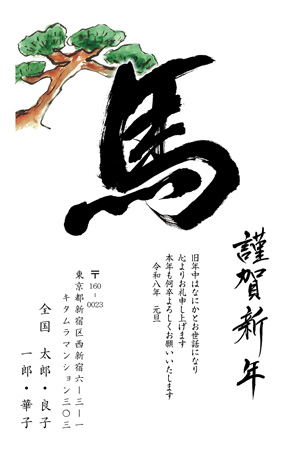 馬
謹賀新年
旧年中はなにかとお世話になり
心よりお礼申し上げます
本年も何卒よろしくお願いいたします
令和八年　元旦
〒160-0023
東京都新宿区西新宿六ー三ー一
キタムラマンション三〇三
全国　太郎・良子
一郎・華子